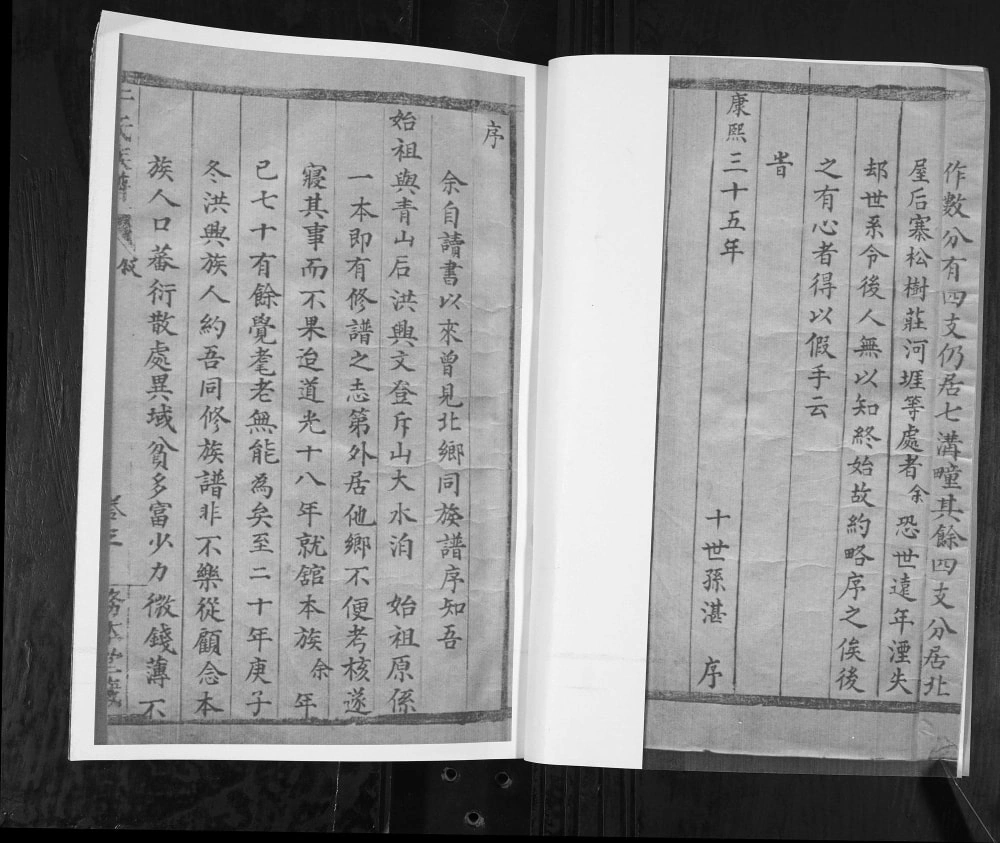 作數分有四支仍居七溝疃其餘四支分居北
屋后寨松樹莊河堐等處者余恐世遠年湮失
却世系令後人無以知終始故約略序之俟後
之有心者得以假手云
旹
康熙三十五年　十世孫湛　序
序
余自讀書以來曾見北鄉同族譜序知吾
始祖與青山后洪興文登斥山大水泊　始祖原係
一本即有修譜之志第外居他鄉不便考核遂
寢其事而不果迨道光十八年就舘本族余年
已七十有餘覺耄老無能為矣至二十年庚子
冬洪興族人約吾同修族譜非不樂從顧念本
族人口蕃衍散處異域貧多富少力微錢薄不
氏族譜
卷三
務本堂